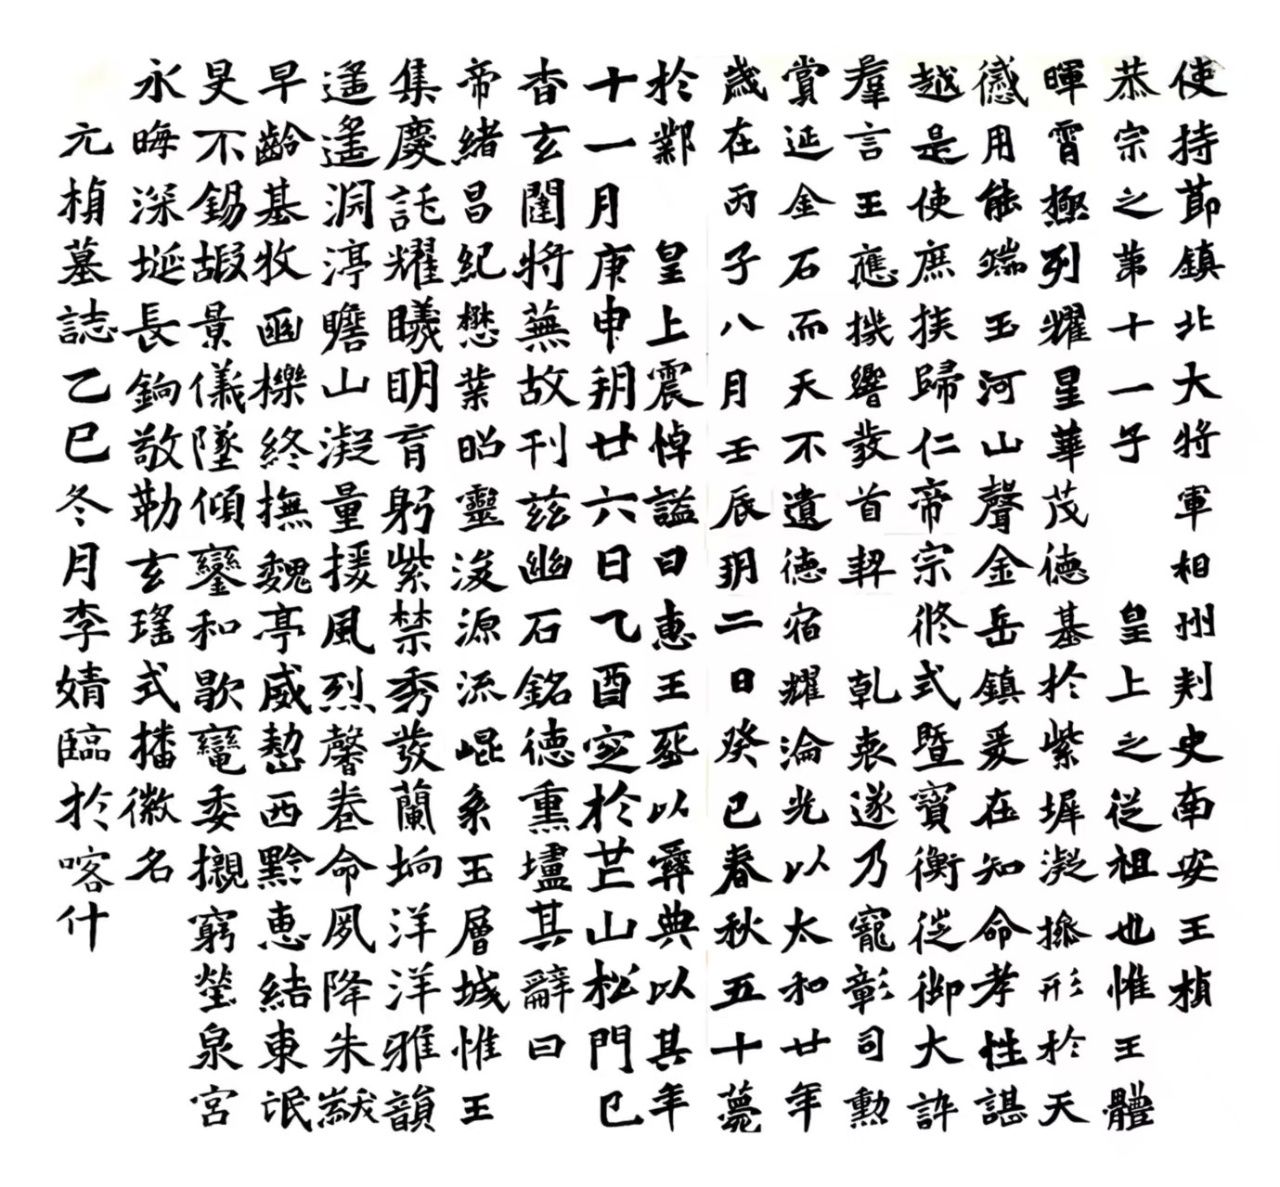 使持節鎮北大將軍相州刺史南安王楨
恭宗之第十一子皇上之從祖也惟王體
暉霄極列耀星華茂德基於紫墀凝操形於天
感用能端玉河山聲金岳鎮爰在知命孝性諶
越是使庶族歸仁帝宗攸式暨寶衡徙御大訏
羣言王應機響發首契乾衷遂乃寵彰司勲
賞延金石而天不遺德宿耀淪光以太和廿年
歲在丙子八月壬辰朔二日癸巳春秋五十薨
於鄴皇上震悼謚曰惠王葬以彝典以其年
十一月庚申朔廿六日乙酉窆於芒山松門已
杳玄闥將蕪故刊茲幽石銘德熏壚其辭曰
帝緒昌紀懋業昭靈浚源流崐系玉層城惟王
集慶託耀曦明育躬紫禁秀發蘭坰洋洋雅韻
遥遥洞渟瞻山凝量援風烈馨卷命夙降朱黻
早齡基牧幽櫟終撫魏亭威懃西黔惠結東氓
旻不錫嘏景儀墜傾鑾和歇鞶委櫬窮塋泉宮
永晦深埏長鉤敬勒玄瑤式播徽名
元楨墓誌乙巳冬月李婧臨於喀什